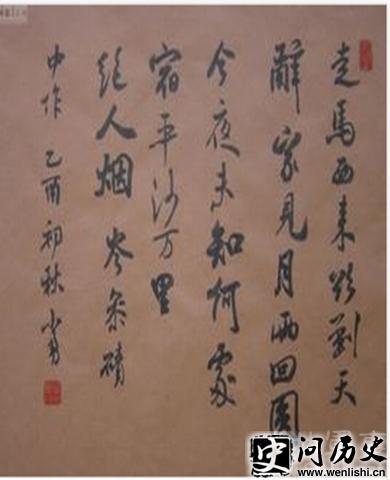 走馬西来欲到天
辭家見月两回圓
今夜未知何處
宿平沙万里
絕人烟 岑參磧
中作 乙酉初秋 小勇
史问历史
www.wenlishi.cn